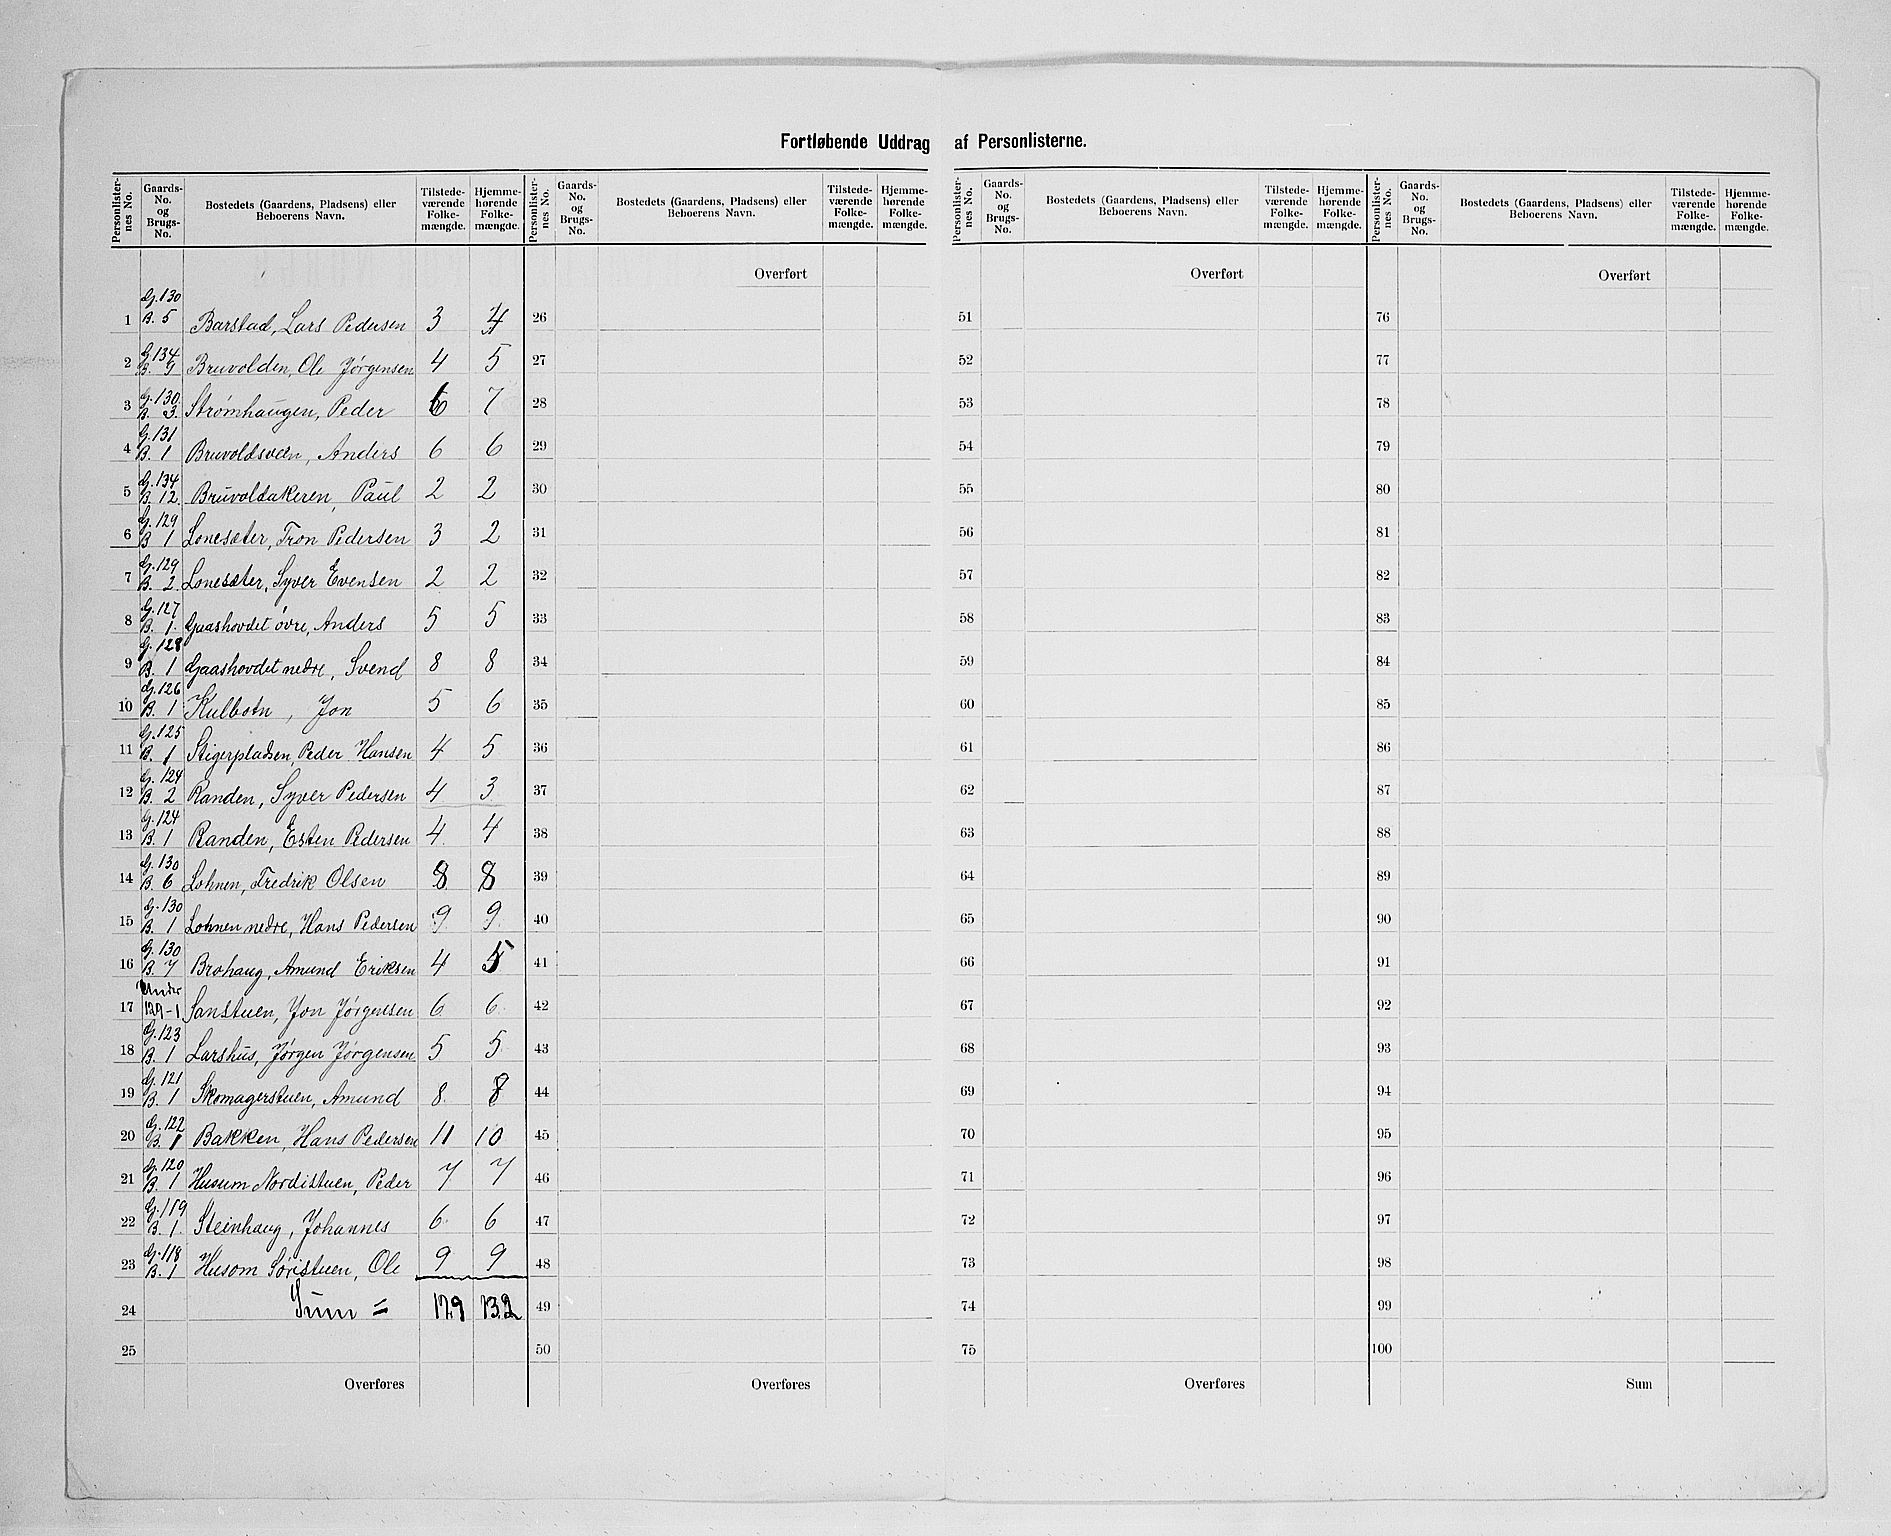 Fortløbende Uddrag af Personlisterne.
Personlister-nes No. Gaards-No. og Brugs-No. Bostedets (Gaardens, Pladsens) eller Beboerens Navn. Tilstede-værende Folke-mængde. Hjemme-hørende Folke-mængde.
Personlister-nes No. Gaards-No. og Brugs-No. Bostedets (Gaardens, Pladsens) eller Beboerens Navn. Tilstede-værende Folke-mængde. Hjemme-hørende Folke-mængde.
Personlister-nes No. Gaards-No. og Brugs-No. Bostedets (Gaardens, Pladsens) eller Beboerens Navn. Tilstede-værende Folke-mængde. Hjemme-hørende Folke-mængde.
Personlister-nes No. Gaards-No. og Brugs-No. Bostedets (Gaardens, Pladsens) eller Beboerens Navn. Tilstede-værende Folke-mængde. Hjemme-hørende Folke-mængde.
Overført Overført Overført
1 G. 130 B. 5 Barstad, Lars Pedersen 3 4 26 51 76
2 G. 134 B. 9 Bruvolden, Ole Jørgensen 4 5 27 52 77
3 G. 130 B. 3. Strømhaugen, Peder 6 7 28 53 78
4 G. 131 B. 1 Bruvoldsveen, Anders 6 6 29 54 79
5 G. 134 B. 12. Bruvoldakeren, Paul 2 2 30 55 80
6 G. 129 B 1 Lonesæter, Tron Pedersen 3 2 31 56 81
7 G. 129 B. 2. Lonesæter, Syver Evensen 2 2 32 57 82
8 G. 127 B. 1. Gaashovdet øvre, Anders 5 5 33 58 83
9 G. 128 B. 1 Gaashovdet nedre, Svend 8 8 34 59 84
10 G. 126 B. 1 Kulbotn, Jon 5 6 35 60 85
11 G. 125 B. 1 Stigerpladsen, Peder Hansen 4 5 36 61 86
12 G. 124 B. 2 Randen, Syver Pedersen 4 3 37 62 87
13 G. 124 B. 1 Randen, Esten Pedersen 4 4 38 63 88
14 G. 130 B. 6 Lohnen, Fredrik Olsen 8 8 39 64 89
15 G. 130 B. 1 Lohnen nedre, Hans Pedersen 9 9 40 65 90
16 G. 130 B. 7 Brohaug, Amund Eriksen 4 5 41 66 91
17 Under 129-1 Sanstuen, Jon Jørgensen 6 6 42 67 92
18 G. 123 B. 1 Larshus, Jørgen Jørgensen 5 5 43 68 93
19 G. 121 B. 1 Skomagerstuen, Amund 8 8 44 69 94
20 G. 122 B. 1 Bakken, Hans Pedersen 11 10 45 70 95
21 G. 120 B. 1 Husum Nordistuen, Peder 7 7 46 71 96
22 G. 119 B. 1. Steinhaug, Johannes 6 6 47 72 97
23 G. 118 B. 1 Husom Søristuen, Ole 9 9 48 73 98
24 Sum = 129 132 49 74 99
25 50 75 100
Overføres Overføres Overføres Sum